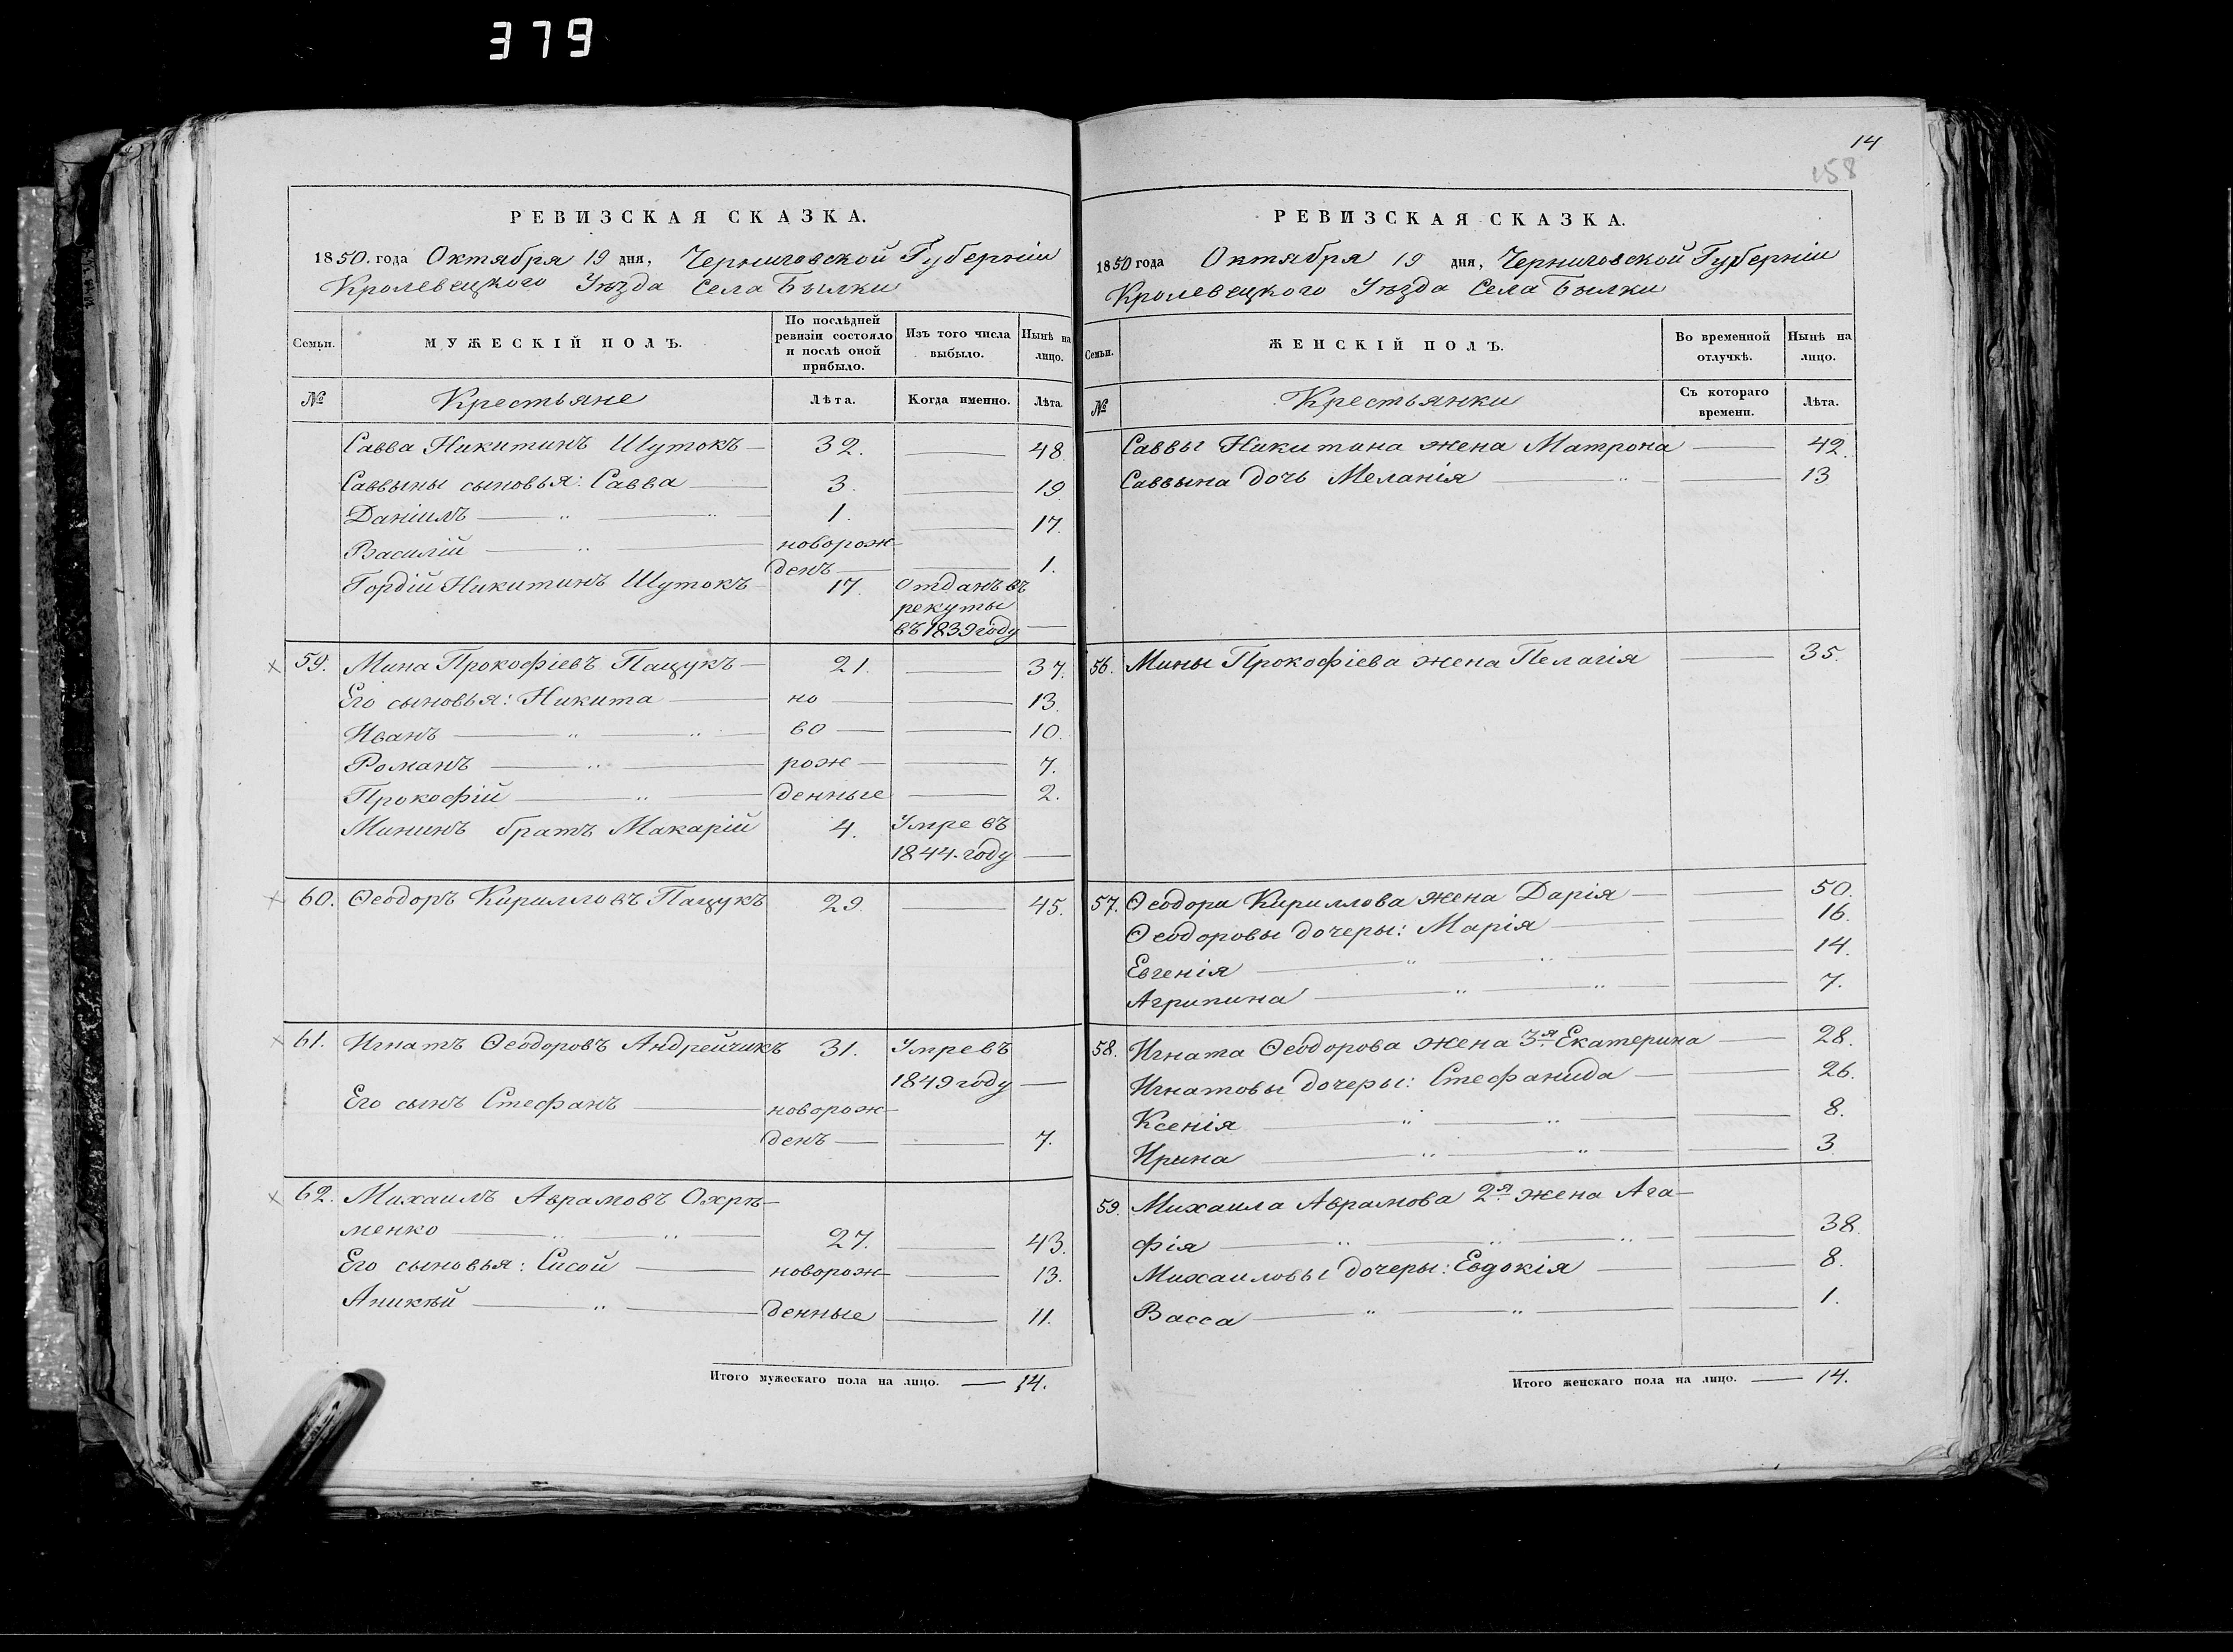 379
РЕВИЗСКАЯ СКАЗКА.
1850. года Октября 19 дня, Черниговской Губерніи
Кролевецкого Уѣзда Села Бѣлки
Семьи.
МУЖЕСКІЙ ПОЛЪ.
По послѣдней ревизіи состояло и послѣ оной прибыло.
Изъ того числа выбыло.
Нынѣ на лицо.
№ Крестьяне Лѣта. Когда именно. Лѣта.
Савва Никитинъ Шутокъ — 32. — 48.
Саввины сыновья: Савва — 3. — 19.
Даніилъ — „ — „ 1. — 17.
Василій — „ — новорож-
денъ — — 1.
Гордій Никитинъ Шутокъ 17. Отданъ въ
рекуты
въ 1839 году —
59. Мина Прокофіевъ Пащукъ — 21. — 37.
Его сыновья: Никита — но — — 13.
Иванъ — „ — „ — во — — 10.
Романъ — „ — рож — — 7.
Прокофій — „ — денные — 2.
Мининъ братъ Макарій 4. Умре въ
1844. году —
60. Ѳеодоръ Кирилловъ Пащукъ 29. — 45.
61. Игнатъ Ѳеодоровъ Андрейчикъ 31. Умре въ
1849 году —
Его сынъ Стефанъ — новорож-
денъ — — 7.
62. Михаилъ Аврамовъ Охрѣ-
менко — „ — „ — 27. — 43.
Его сыновья: Сисой — новорож- — 13.
Аникѣй — „ — денные — 11.
Итого мужескаго пола на лицо. — 14.
14
158
РЕВИЗСКАЯ СКАЗКА.
1850 года Октября 19 дня, Черниговской Губерніи
Кролевецкого Уѣзда Села Бѣлки
Семьи.
ЖЕНСКІЙ ПОЛЪ.
Во временной отлучкѣ.
Нынѣ на лицо.
№ Крестьянки Съ котораго времени. Лѣта.
Саввы Никитина жена Матрона — 42.
Саввина дочь Меланія — „ — — 13
56. Мины Прокофіева жена Пелагія — 35.
57. Ѳеодора Кириллова жена Дарія — — 50.
Ѳеодоровы дочеры: Марія — — 16.
Евгенія — „ — „ — 14.
Агрипина — „ — „ — — 7.
58. Игната Ѳеодорова жена 3я Екатерина — 28.
Игнатовы дочеры: Стефанида — — 26.
Ксенія — „ — „ — — 8.
Ирина — „ — „ — — 3
59. Михаила Аврамова 2я жена Ага-
фія — „ — „ — „ — — 38.
Михаиловы дочеры: Евдокія — — 8.
Васса — „ — „ — — 1.
Итого женскаго пола на лицо. — 14.